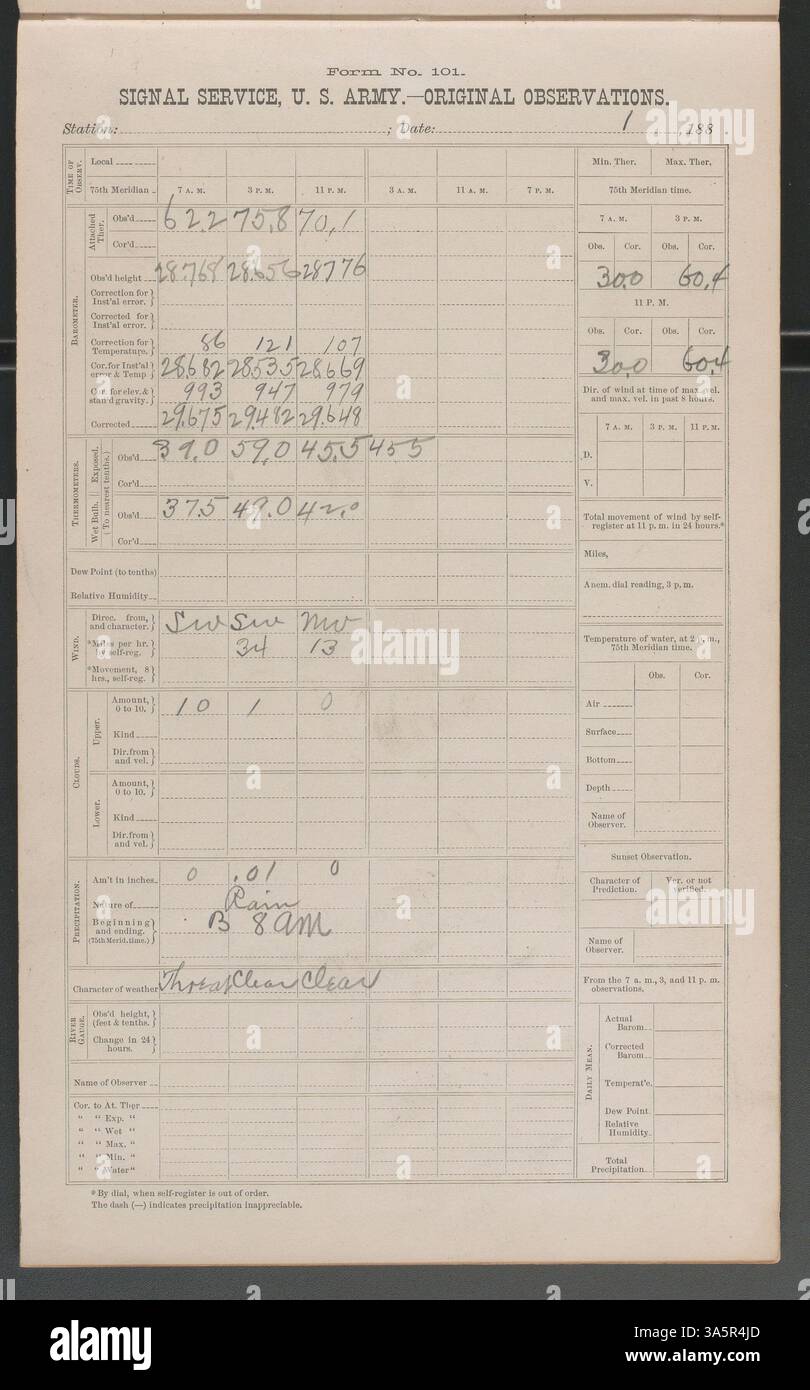 Form No. 101.
SIGNAL SERVICE, U. S. ARMY.—ORIGINAL OBSERVATIONS.
Station: ; Date: 1 , 188 .
TIME OF OBSERV.
Local
75th Meridian 7 A. M. 3 P. M. 11 P. M. 3 A. M. 11 A. M. 7 P. M.
BAROMETER.
Attached Ther.
Obs'd 62.2 75.8 70.1
Cor'd
Obs'd height 28.768 28.656 28776
Correction for Inst'al error.
Corrected for Inst'al error.
Correction for Temperature. 86 121 107
Cor. for Inst'al error & Temp 28.682 28.535 28.669
Cor. for elev. & stan'd gravity. 993 947 979
Corrected 29.675 29.482 29.648
THERMOMETERS.
Exposed.
Wet Bulb.
(To nearest tenths.)
Obs'd 39.0 59.0 45.5 45.5
Cor'd
Obs'd 37.5 49.0 42.0
Cor'd
Dew Point (to tenths)
Relative Humidity
WIND.
Direc. from, and character. SW SW NW
*Miles per hr. by self-reg. 34 13
*Movement, 8 hrs., self-reg.
CLOUDS.
Upper.
Amount, 0 to 10. 10 1 0
Kind
Dir. from and vel.
Lower.
Amount, 0 to 10.
Kind
Dir. from and vel.
PRECIPITATION.
Am't in inches. 0 .01 0
Nature of Rain
Beginning and ending. (75th Merid. time.) B 8 AM
Character of weather Threat Clear Clear
RIVER GAUGE.
Obs'd height, (feet & tenths.)
Change in 24 hours.
Name of Observer
Cor. to At. Ther
" " Exp. "
" " Wet "
" " Max. "
" " Min. "
" " Water "
* By dial, when self-register is out of order.
The dash (—) indicates precipitation inappreciable.
Min. Ther. Max. Ther.
75th Meridian time.
7 A. M. 3 P. M.
Obs. Cor. Obs. Cor.
30.0 60.4
11 P. M.
Obs. Cor. Obs. Cor.
30.0 60.4
Dir. of wind at time of max. vel. and max. vel. in past 8 hours.
7 A. M. 3 P. M. 11 P. M.
D.
V.
Total movement of wind by self-register at 11 p. m. in 24 hours.*
Miles,
Anem. dial reading, 3 p, m.
Temperature of water, at 2 p, m., 75th Meridian time.
Obs. Cor.
Air
Surface
Bottom
Depth
Name of Observer.
Sunset Observation.
Character of Prediction. Ver. or not verified.
Name of Observer.
From the 7 a. m., 3, and 11 p. m. observations.
DAILY MEAN.
Actual Barom
Corrected Barom
Temperat'e.
Dew Point
Relative Humidity
Total Precipitation
alamy
a
alamy
Image ID: 3A5R4JD
www.alamy.com